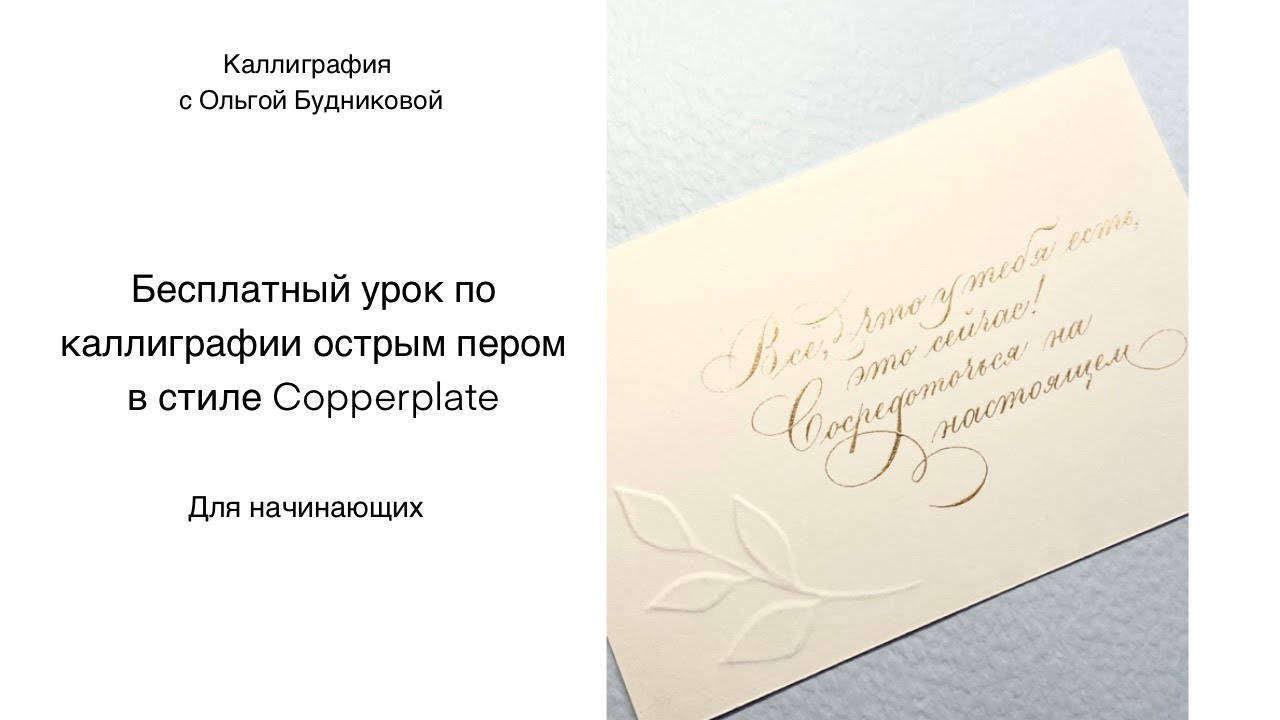 Каллиграфия
с Ольгой Будниковой
Бесплатный урок по
каллиграфии острым пером
в стиле Copperplate
Для начинающих
Всё, что у тебя есть,
это сейчас!
Сосредоточься на
настоящем